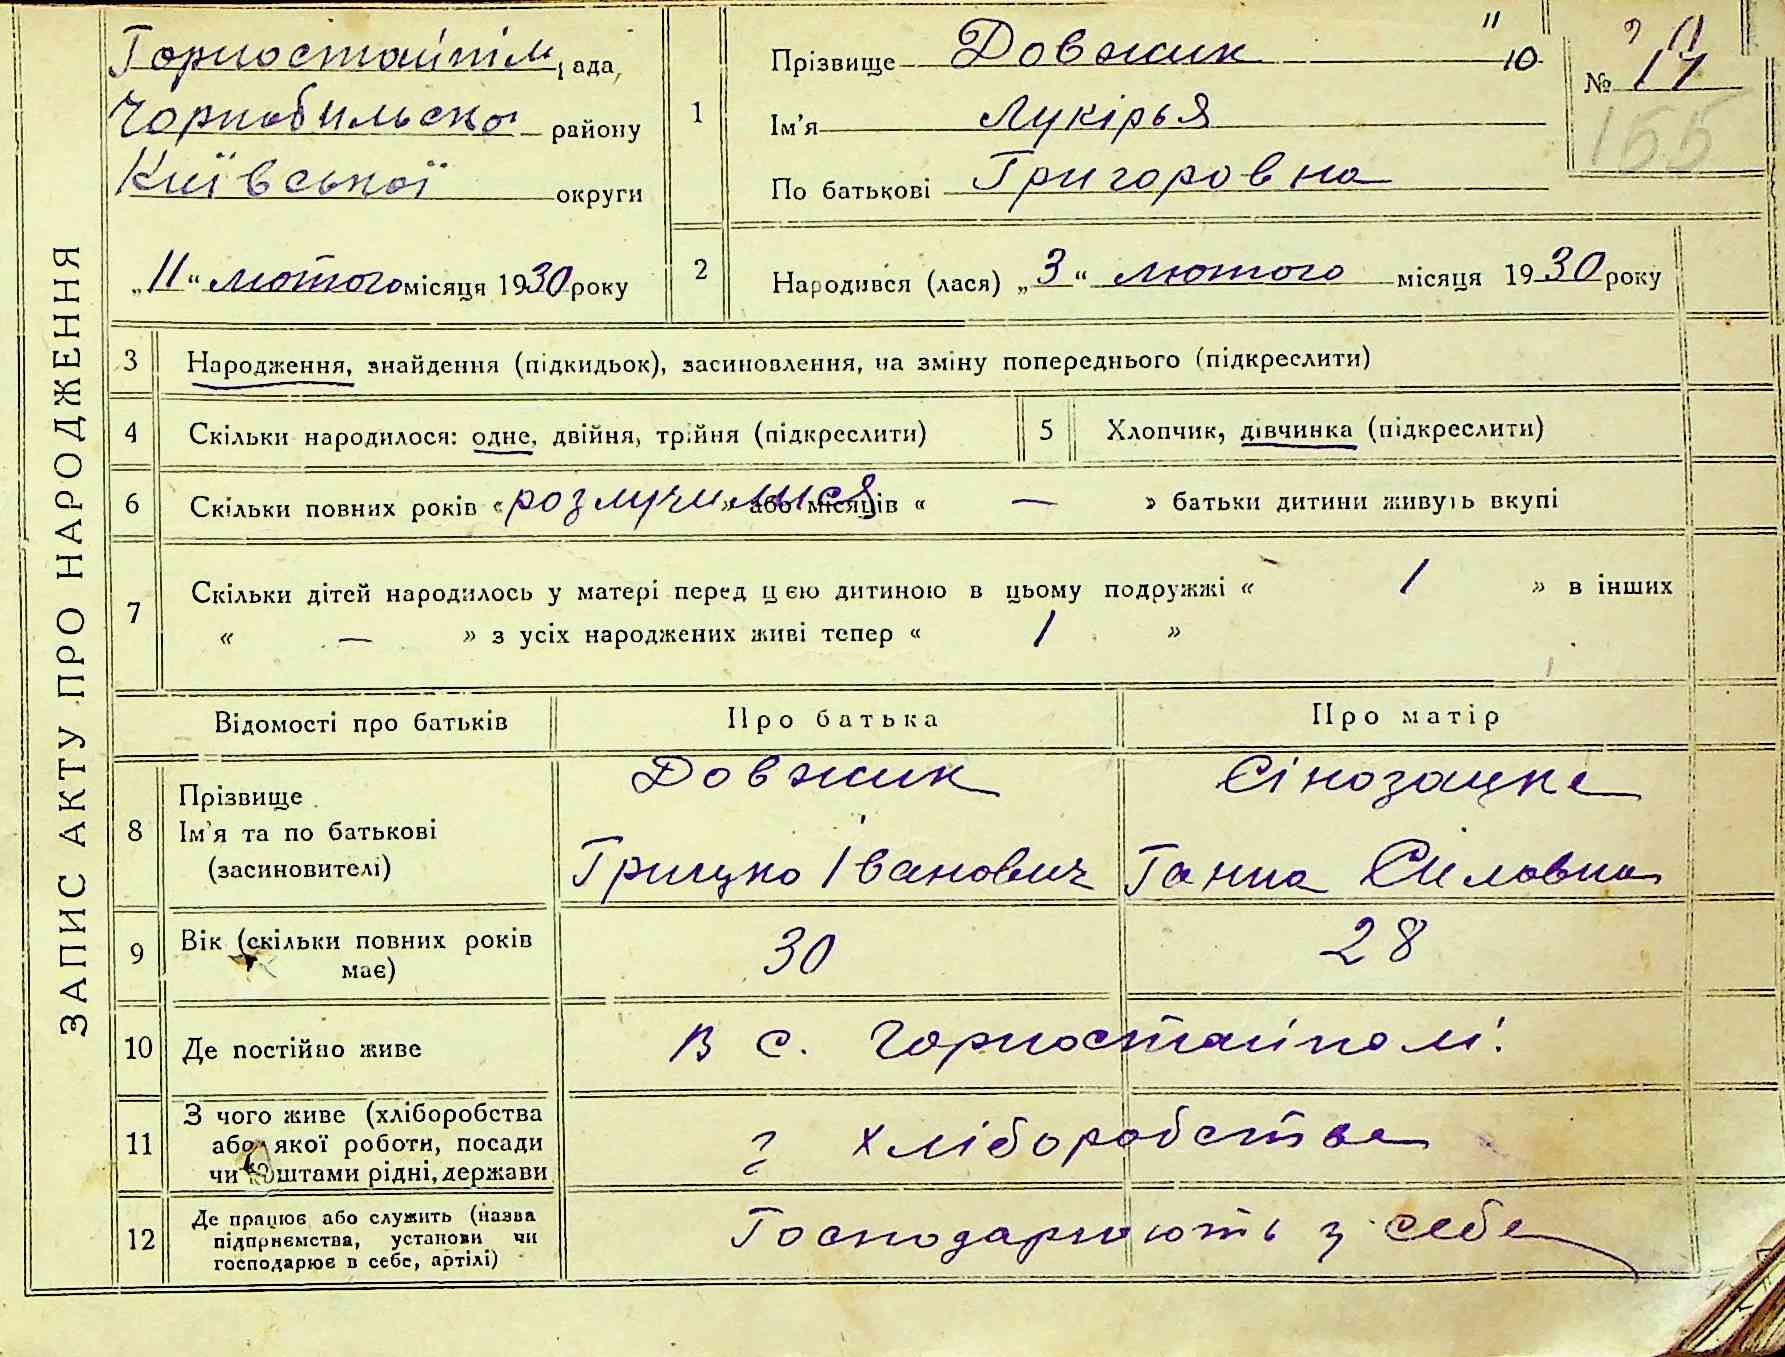 ЗАПИС АКТУ ПРО НАРОДЖЕННЯ
Горностайпіль ада,
Чорнобильсько району
Київської округи
„11“ лютого місяця 1930 року
1
Прізвище Довжик
"
10
Ім'я Лукірья
По батькові Григоровна
№ 17
155
2
Народився (лася) „3“ лютого місяця 1930 року
3 Народження, знайдення (підкидьок), засиновлення, на зміну попереднього (підкреслити)
4 Скільки народилося: одне, двійня, трійня (підкреслити)
5 Хлопчик, дівчинка (підкреслити)
6 Скільки повних років « розлучилися » або місяців « — » батьки дитини живуть вкупі
7 Скільки дітей народилось у матері перед цею дитиною в цьому подружжі « 1 » в інших
« — » з усіх народжених живі тепер « 1 »
Відомості про батьків Про батька Про матір
8 Прізвище
Ім'я та по батькові
(засиновителі)
Довжик
Грицко Іванович
Сінозацке
Ганна Силовна
9 Вік (скільки повних років
має)
30 28
10 Де постійно живе В с. Горностайполі
11 З чого живе (хліборобства
або якої роботи, посади
чи коштами рідні, держави
з хліборобства
12 Де працює або служить (назва
підприємства, установи чи
господарює в себе, артілі)
Господарюють у себе